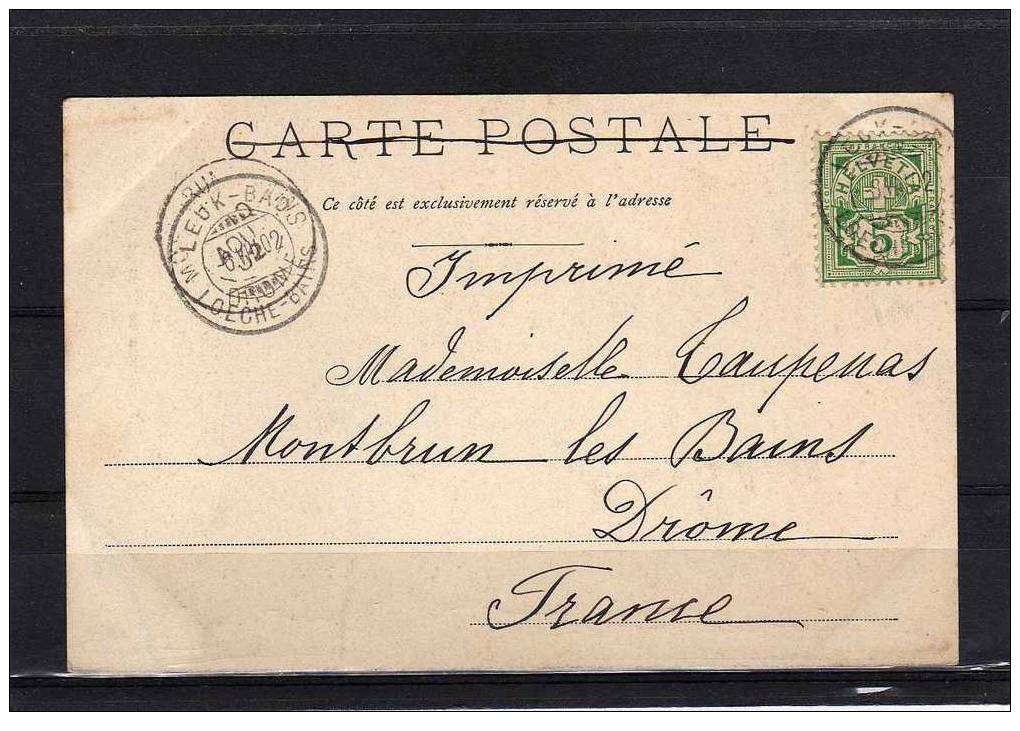 CARTE POSTALE
Ce côté est exclusivement réservé à l'adresse
HELVETIA
5
LEUK-BADS
LOECHE-BAINS
02
DROME
Imprimé
Mademoiselle Taupenas
Montbrun les Bains
Drôme
France